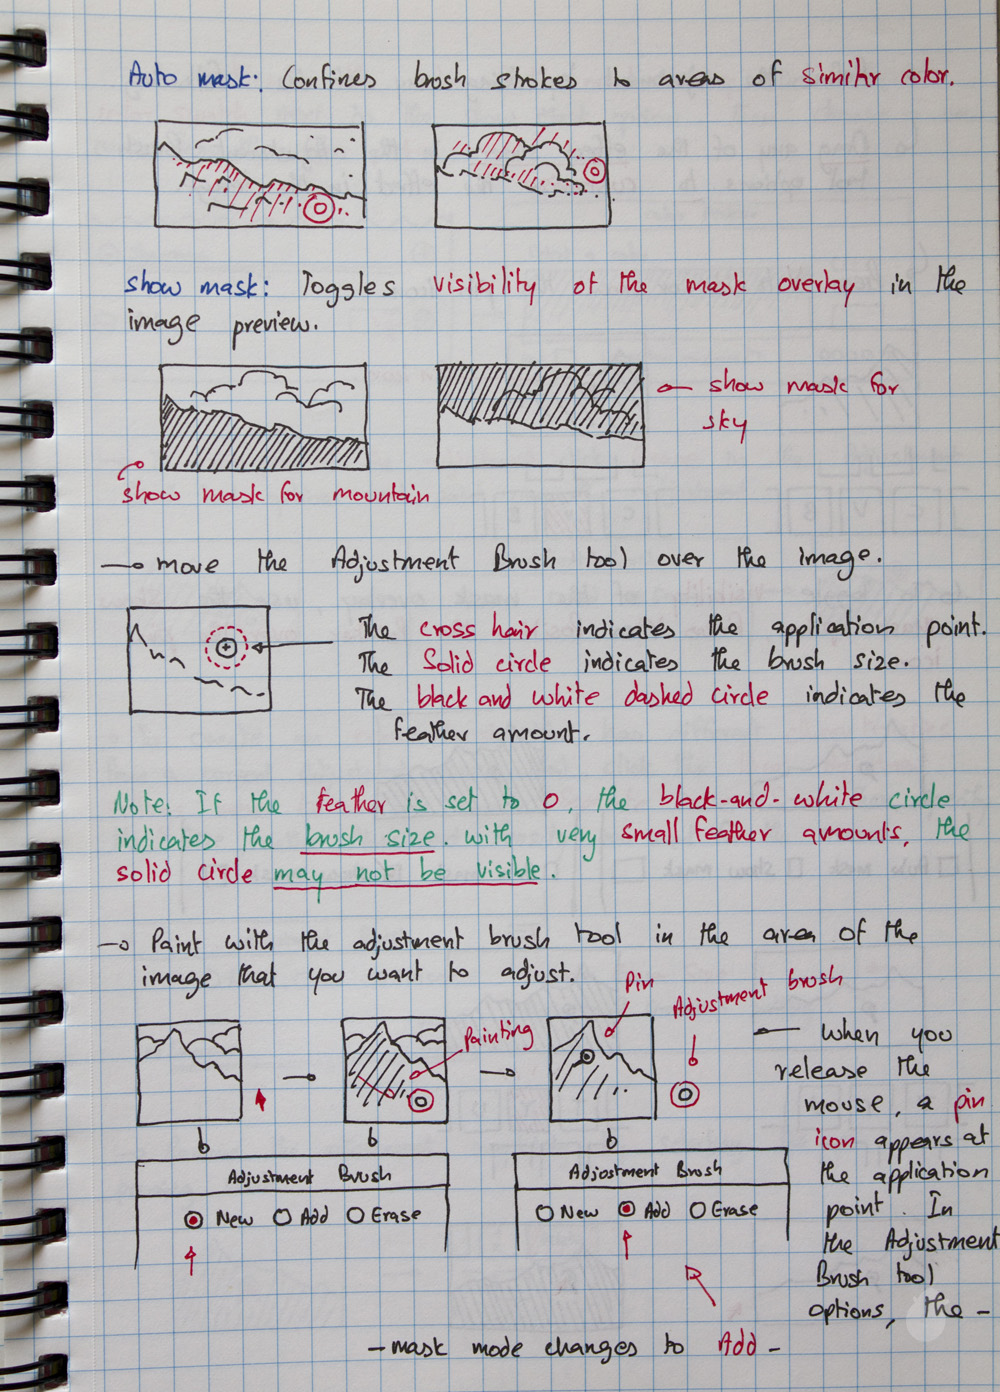 Auto mask: Confines brush strokes to areas of similar color.
show mask: Toggles visibility of the mask overlay in the
image preview.
show mask for
sky
show mask for mountain
move the Adjustment Brush tool over the image.
The cross hair indicates the application point.
The Solid circle indicates the brush size.
The black and white dashed circle indicates the
feather amount.
Note: If the feather is set to 0, the black-and-white circle
indicates the brush size. with very small feather amounts, the
solid circle may not be visible.
Paint with the adjustment brush tool in the area of the
image that you want to adjust.
Painting
Pin
Adjustment brush
when you
release the
mouse, a pin
icon appears at
the application
point. In
the Adjustment
Brush tool
options, the -
Adjustment Brush
New Add Erase
Adjustment Brush
New Add Erase
- mask mode changes to Add -